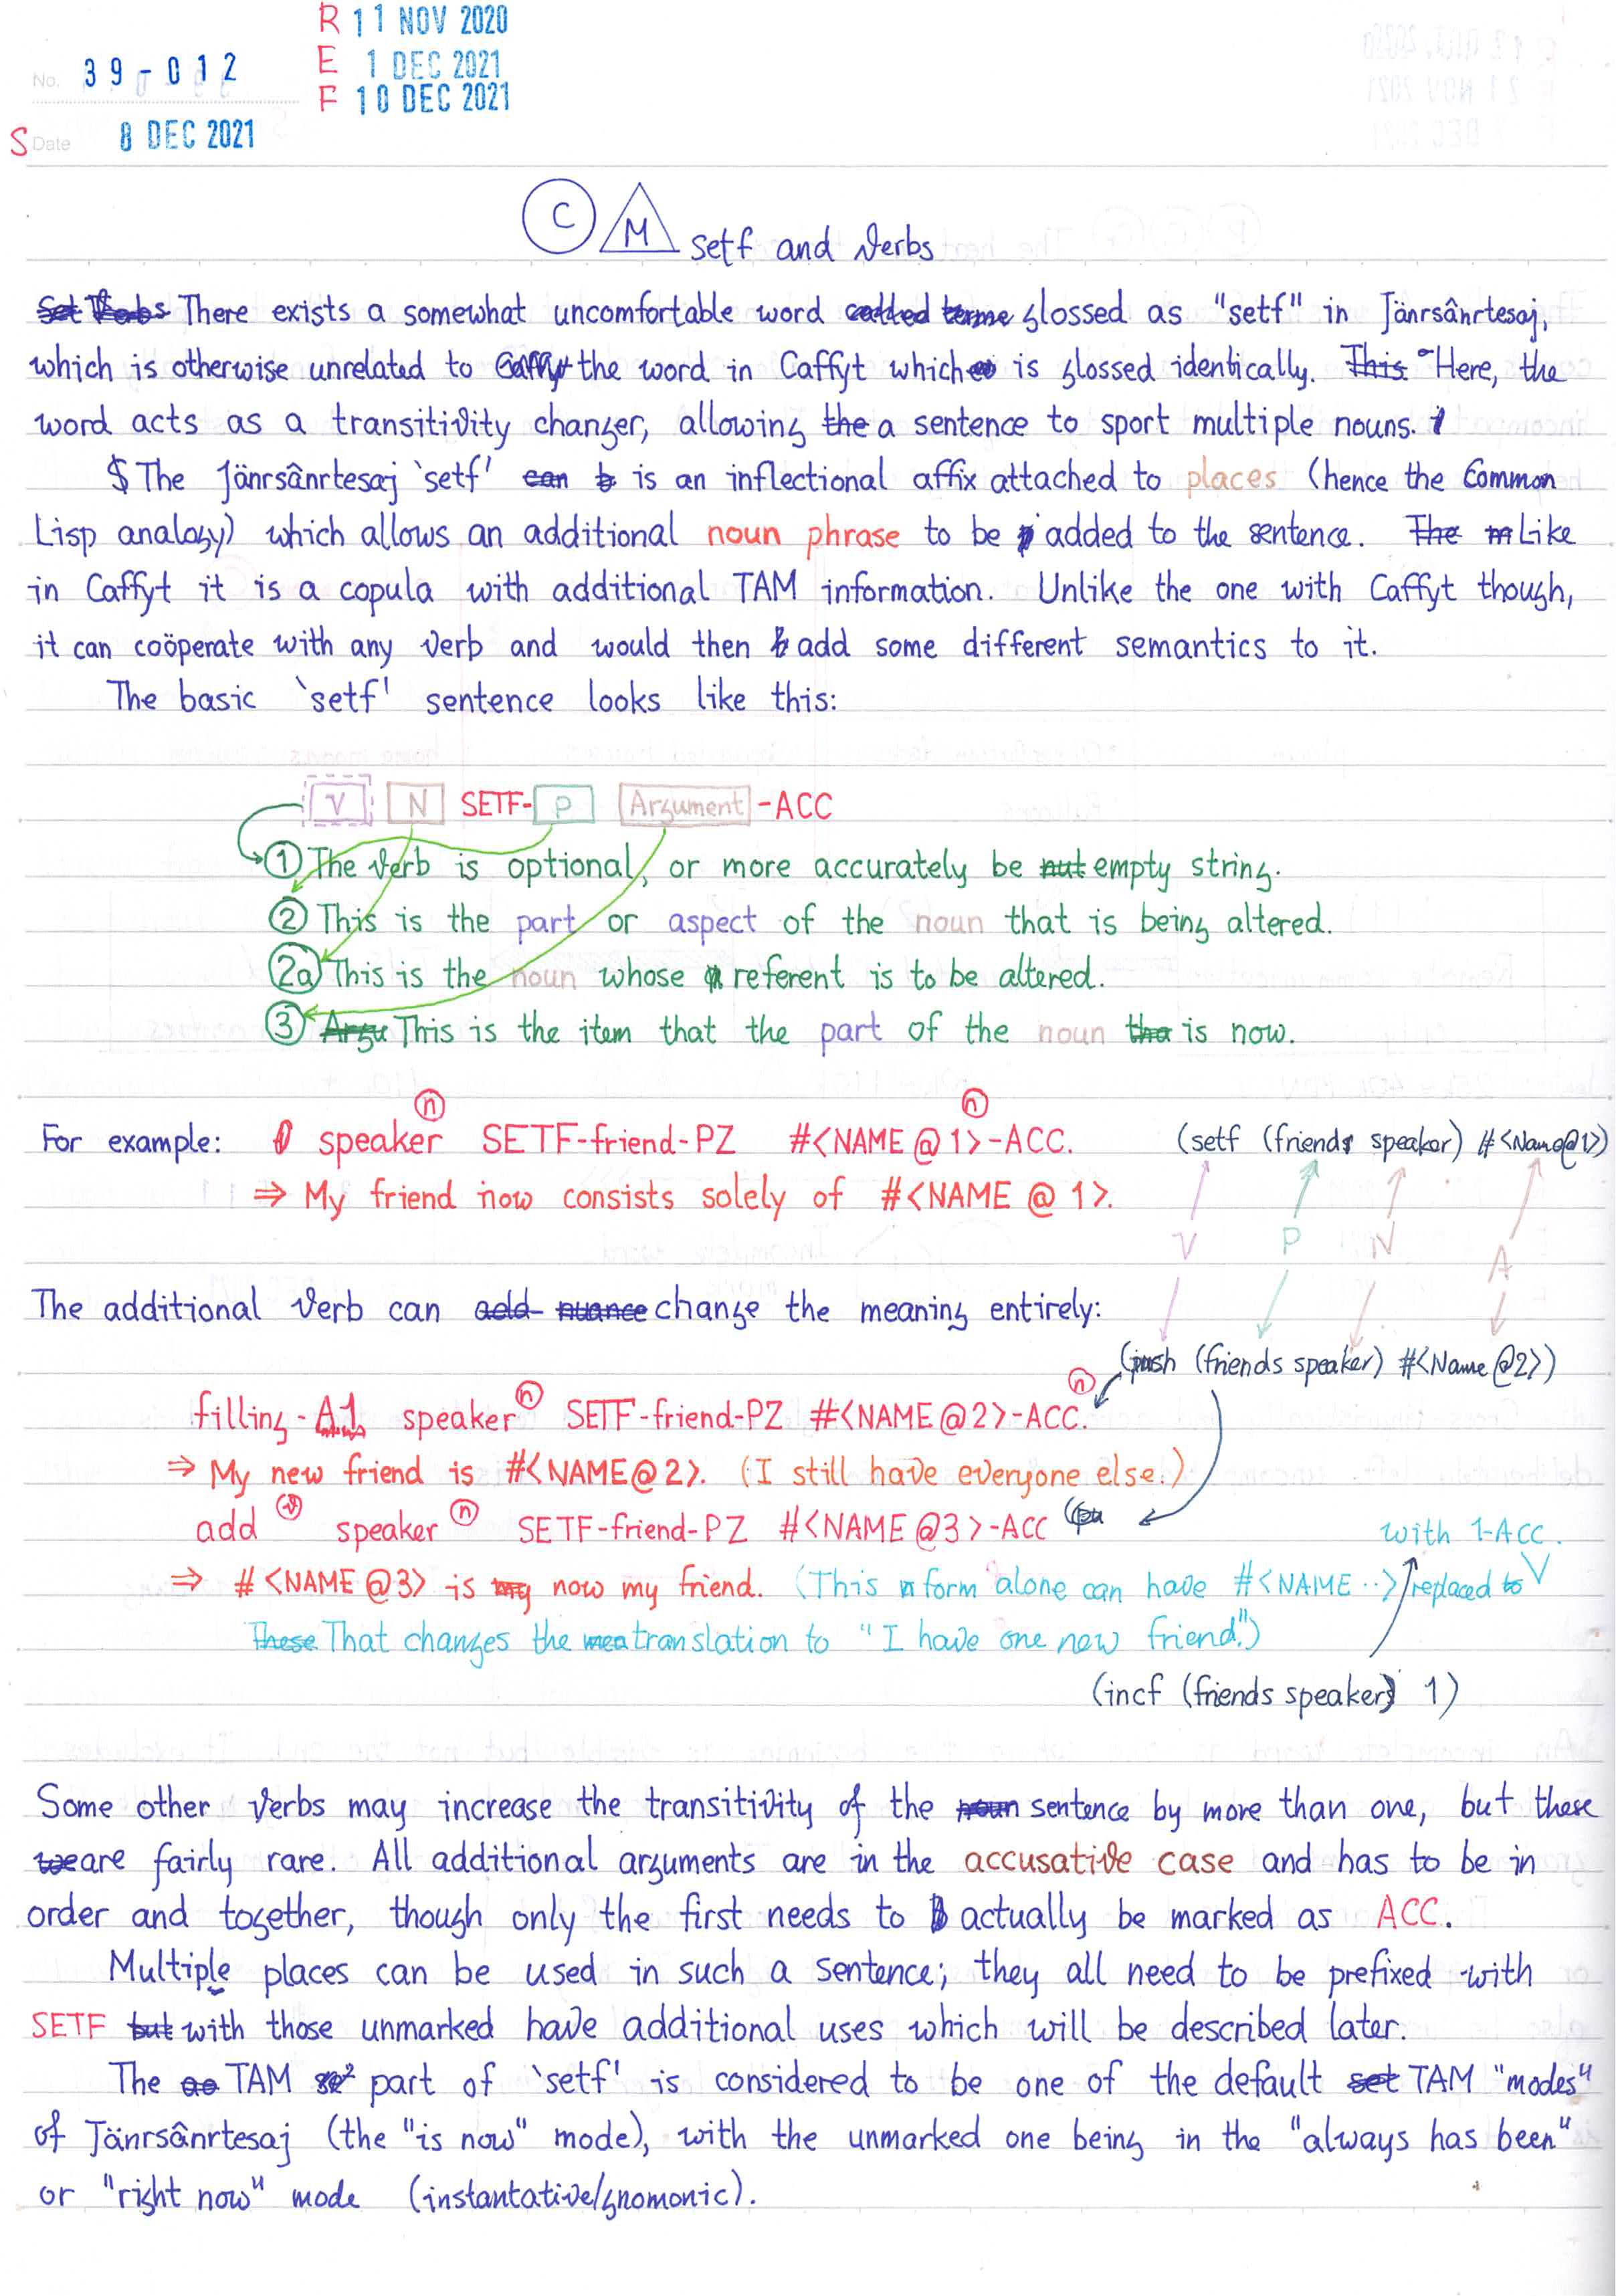 R 11 NOV 2020
E 1 DEC 2021
F 10 DEC 2021
No. 39-012
S Date 8 DEC 2021
C M setf and verbs
There exists a somewhat uncomfortable word glossed as "setf" in Jänrsânrtesaj,
which is otherwise unrelated to the word in Caffyt which is glossed identically. Here, the
word acts as a transitivity changer, allowing a sentence to sport multiple nouns.
$ The Jänrsânrtesaj `setf' is an inflectional affix attached to places (hence the Common
Lisp analogy) which allows an additional noun phrase to be added to the sentence. Like
in Caffyt it is a copula with additional TAM information. Unlike the one with Caffyt though,
it can coöperate with any verb and would then add some different semantics to it.
The basic `setf' sentence looks like this:
V N SETF-P Argument-ACC
① The verb is optional, or more accurately be empty string.
② This is the part or aspect of the noun that is being altered.
2a This is the noun whose referent is to be altered.
③ This is the item that the part of the noun is now.
For example: speaker ⓝ SETF-friend-PZ #<NAME @ 1>-ACC. ⓝ (setf (friends speaker) #<Name@1>)
⇒ My friend now consists solely of #<NAME @ 1>.
V P N A
The additional verb can change the meaning entirely:
(push (friends speaker) #<Name@2>)
filling-A1 speaker ⓝ SETF-friend-PZ #<NAME@2>-ACC. ⓝ
⇒ My new friend is #<NAME@2>. (I still have everyone else.)
add ⓥ speaker ⓝ SETF-friend-PZ #<NAME@3>-ACC
with 1-ACC.
⇒ #<NAME@3> is now my friend. (This form alone can have #<NAME··> replaced
That changes the translation to "I have one new friend.")
(incf (friends speaker) 1)
Some other verbs may increase the transitivity of the sentence by more than one, but these
are fairly rare. All additional arguments are in the accusative case and has to be in
order and together, though only the first needs to actually be marked as ACC.
Multiple places can be used in such a sentence; they all need to be prefixed with
SETF with those unmarked have additional uses which will be described later.
The TAM part of `setf' is considered to be one of the default TAM "modes"
of Jänrsânrtesaj (the "is now" mode), with the unmarked one being in the "always has been"
or "right now" mode (instantative/gnomonic).